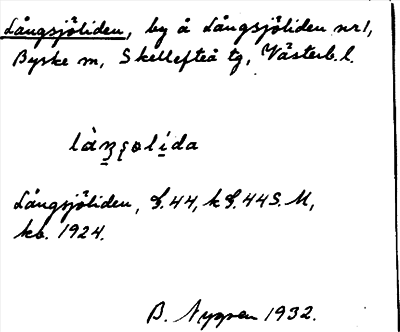 Långsjöliden, by å Långsjöliden nr 1,
Byske sn, Skellefteå tg, Västerb. l.
Långsjöliden, G. 44, k G. 44 S. M,
kb. 1924.
B. Nygren 1932.